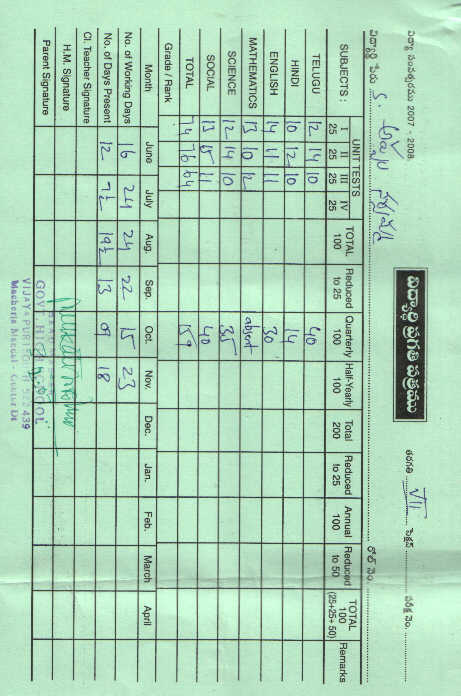 విద్యార్థి ప్రగతి పత్రము
విద్యా సంవత్సరము 2007 - 2008. తరగతి VII సెక్షన్ పరీక్ష నెం.
విద్యార్థి పేరు S. రోల్ నెం.
SUBJECTS : UNIT TESTS I 25 II 25 III 25 IV 25 TOTAL 100 Reduced to 25 Quarterly 100 Half-Yearly 100 Total 200 Reduced to 25 Annual 100 Reduced to 50 TOTAL 100 (25+25+ 50) Remarks
TELUGU 12 14 10 40
HINDI 10 12 10 14
ENGLISH 14 11 11 30
MATHEMATICS 13 10 12 absent
SCIENCE 12 14 10 35
SOCIAL 13 15 11 40
TOTAL 74 76 64 159
Grade / Rank
Month June July Aug. Sep. Oct. Nov. Dec. Jan. Feb. March April
No. of Working Days 16 24 24 22 15 23
No. of Days Present 12 7½ 19½ 13 09 18
Cl. Teacher Signature
H.M. Signature
Parent Signature